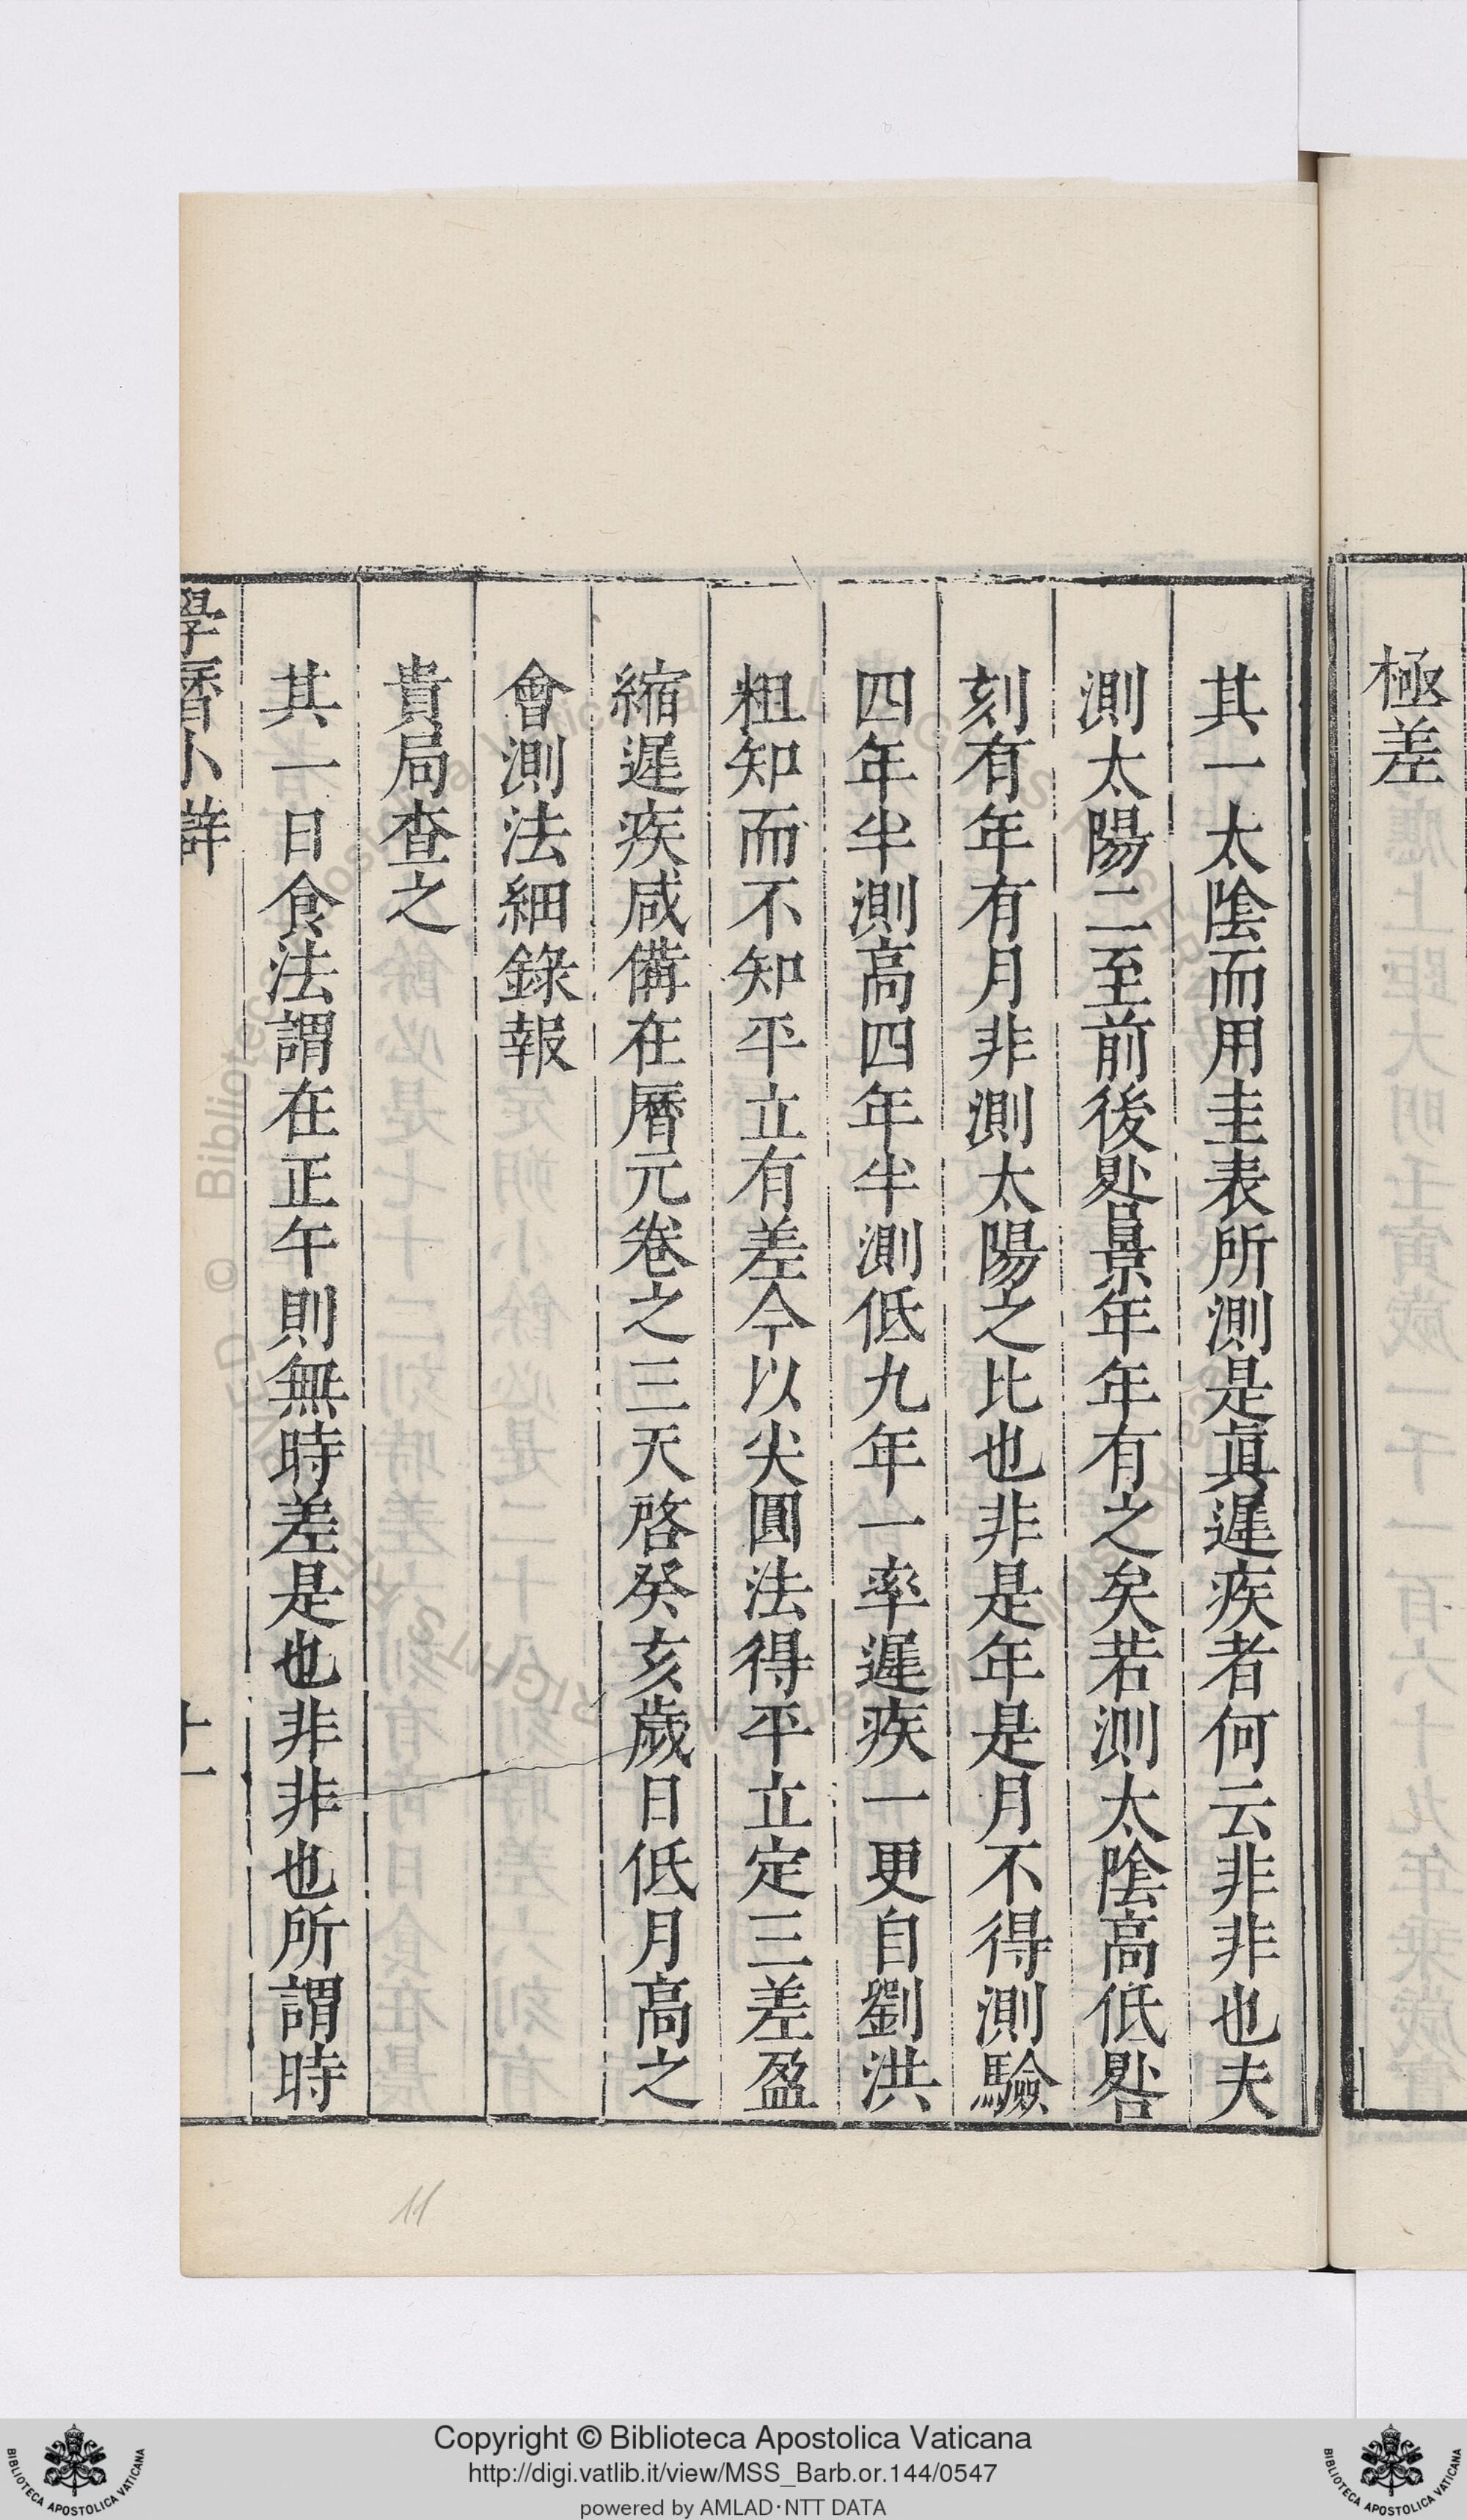 極差
其一太陰而用圭表所測是眞遲疾者何云非非也夫
測太陽二至前後晷景年年有之矣若測太陰高低晷
刻有年有月非測太陽之比也非是年是月不得測驗
四年半測高四年半測低九年一率遲疾一更自劉洪
粗知而不知平立有差今以尖圓法得平立定三差盈
縮遲疾咸備在曆元卷之三天啓癸亥歲日低月高之
會測法細錄報
貴局查之
其一日食法謂在正午則無時差是也非非也所謂時
學曆小辯
十一
Copyright © Biblioteca Apostolica Vaticana
http://digi.vatlib.it/view/MSS_Barb.or.144/0547
powered by AMLAD·NTT DATA
BIBLIOTECA APOSTOLICA VATICANA
BIBLIOTECA APOSTOLICA VATICANA
11